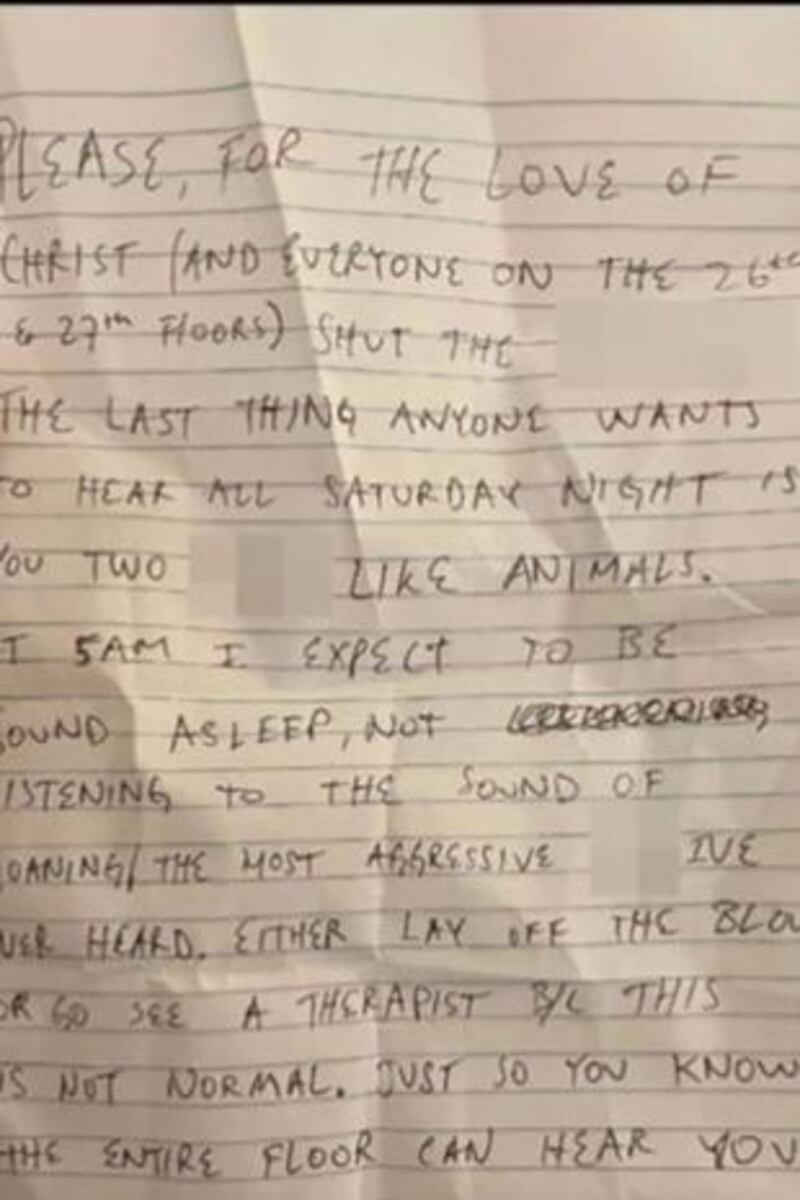 PLEASE, FOR THE LOVE OF
CHRIST (AND EVERYONE ON THE 26th
& 27th FLOORS) SHUT THE
THE LAST THING ANYONE WANTS
TO HEAR ALL SATURDAY NIGHT IS
YOU TWO LIKE ANIMALS.
T 5AM I EXPECT TO BE
SOUND ASLEEP, NOT
ISTENING TO THE SOUND OF
OANING/THE MOST AGGRESSIVE IVE
VER HEARD. EITHER LAY OFF THE BLOW
OR GO SEE A THERAPIST B/C THIS
IS NOT NORMAL. JUST SO YOU KNOW
THE ENTIRE FLOOR CAN HEAR YOU